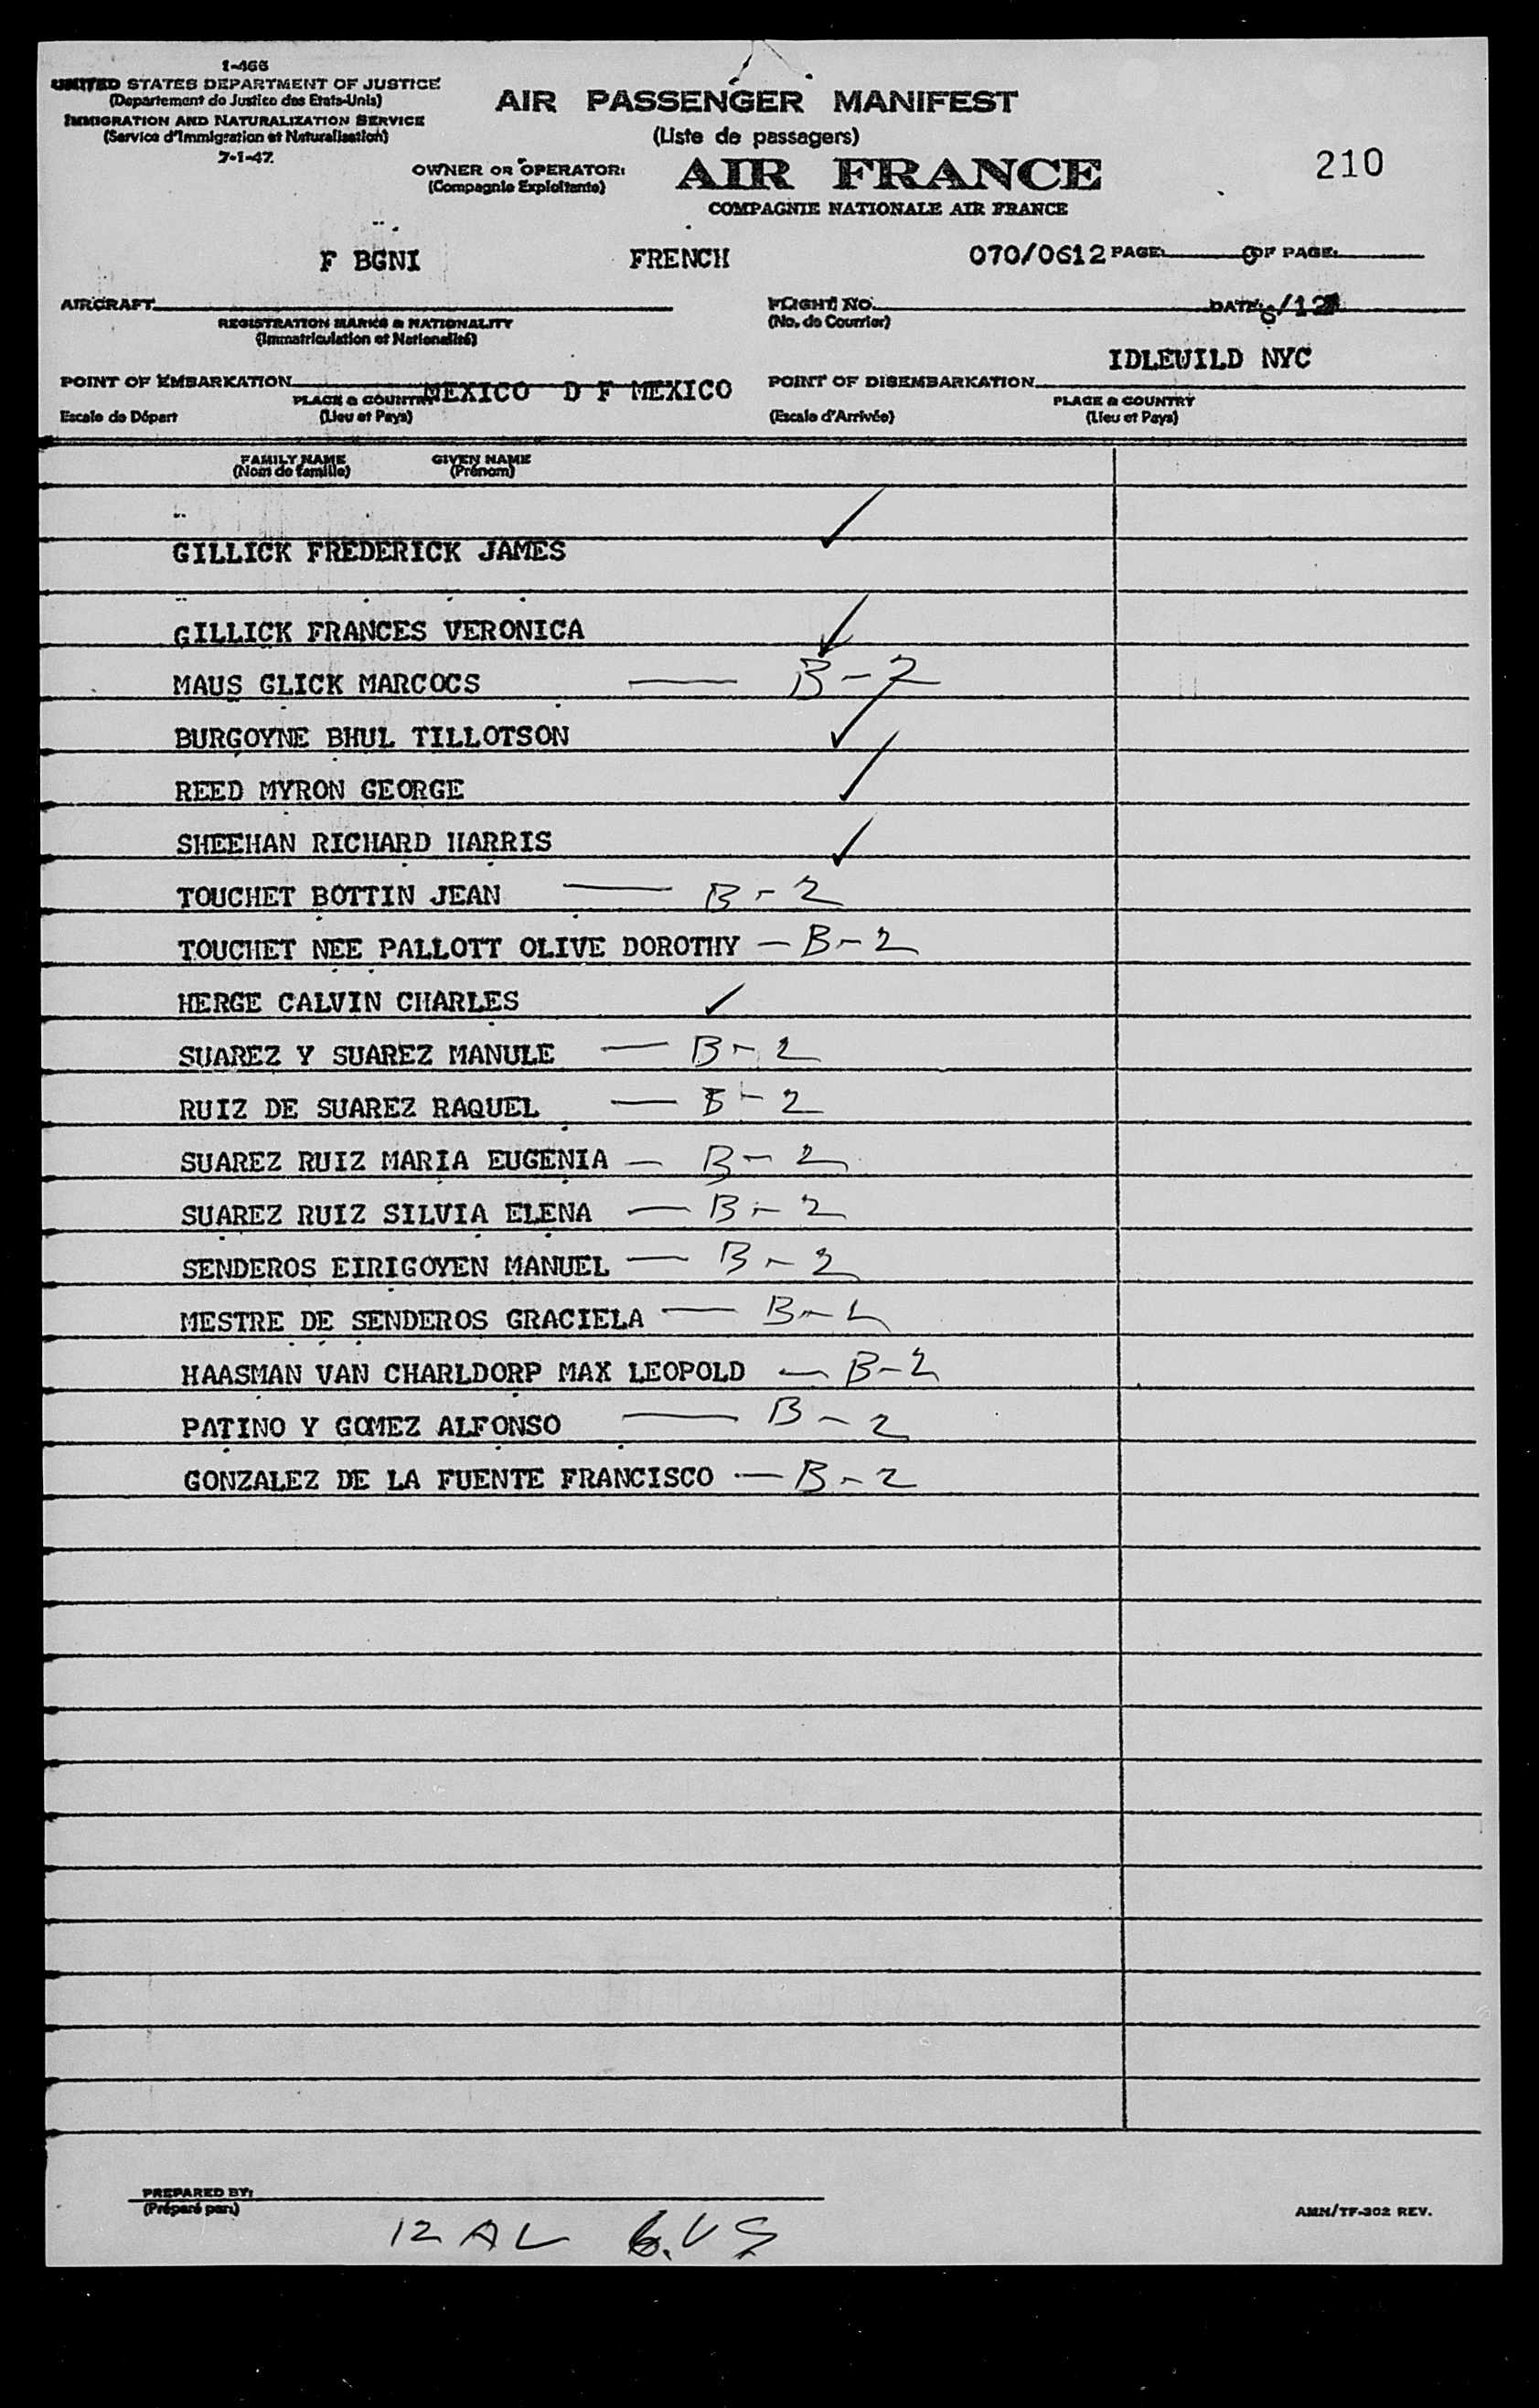 I-466
UNITED STATES DEPARTMENT OF JUSTICE
(Departement de Justice des Etats-Unis)
IMMIGRATION AND NATURALIZATION SERVICE
(Service d'Immigration et Naturalisation)
7-1-47.
AIR PASSENGER MANIFEST
(Liste de passagers)
OWNER OR OPERATOR:
(Compagnie Exploitante)
AIR FRANCE
COMPAGNIE NATIONALE AIR FRANCE
210
F BGNI FRENCH 070/0612 PAGE: OF PAGE:
AIRCRAFT FLIGHT NO. DATE:
REGISTRATION MARKS & NATIONALITY (No. de Courrier)
(Immatriculation et Nationalité)
IDLEWILD NYC
POINT OF EMBARKATION MEXICO D F MEXICO POINT OF DISEMBARKATION
PLACE & COUNTRY PLACE & COUNTRY
Escale de Départ (Lieu et Pays) (Escale d'Arrivée) (Lieu et Pays)
FAMILY NAME GIVEN NAME
(Nom de famille) (Prénom)
GILLICK FREDERICK JAMES ✓
GILLICK FRANCES VERONICA ✓
MAUS GLICK MARCOCS — B-2
BURGOYNE BHUL TILLOTSON ✓
REED MYRON GEORGE ✓
SHEEHAN RICHARD HARRIS ✓
TOUCHET BOTTIN JEAN — B-2
TOUCHET NEE PALLOTT OLIVE DOROTHY — B-2
HERGE CALVIN CHARLES ✓
SUAREZ Y SUAREZ MANULE — B-2
RUIZ DE SUAREZ RAQUEL — B-2
SUAREZ RUIZ MARIA EUGENIA — B-2
SUAREZ RUIZ SILVIA ELENA — B-2
SENDEROS EIRIGOYEN MANUEL — B-2
MESTRE DE SENDEROS GRACIELA — B-2
HAASMAN VAN CHARLDORP MAX LEOPOLD — B-2
PATINO Y GOMEZ ALFONSO — B-2
GONZALEZ DE LA FUENTE FRANCISCO — B-2
PREPARED BY:
(Préparé par:)
AMN/TF-302 REV.
12 AL 6. US